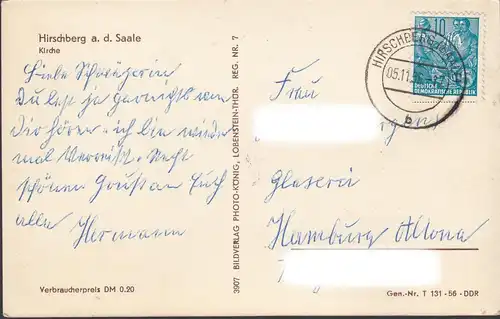 Hirschberg a. d. Saale
Kirche
Liebe Schwägerin
Du läst ja garnichts von
Dir hören. ich bin wieder
mal Verreist. Recht
schönen Gruß an Euch
alle Hermann
Verbraucherpreis DM 0.20
3907 BILDVERLAG PHOTO-KÖNIG, LOBENSTEIN-THÜR. REG. NR. 7
HIRSCHBERG
05.11.
b
10
DEUTSCHE
DEMOKRATISCHE REPUBLIK
Frau
Glaserei
Hamburg Altona
Gen.-Nr. T 131-56-DDR